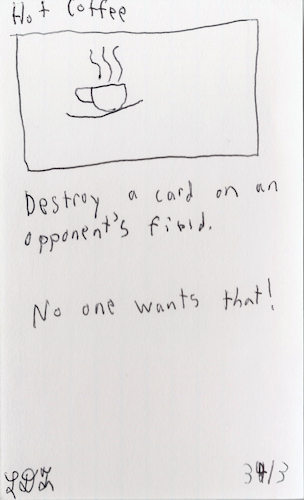 Hot Coffee
Destroy a card on an
opponent's fi
No one wants that!
LDZ